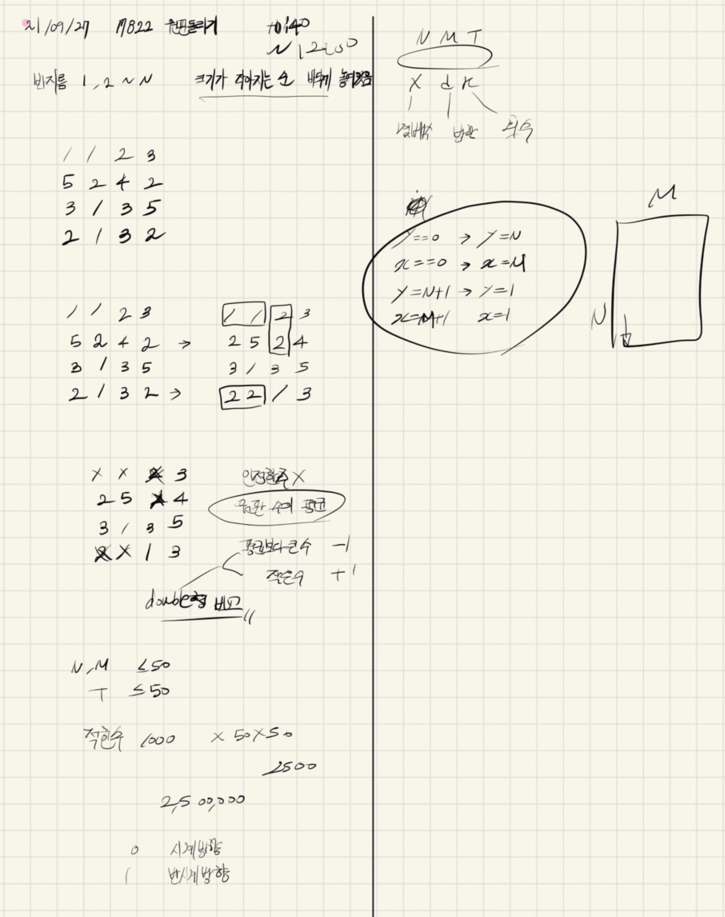 21/09/27 17822 원판돌리기
반지름 1, 2 ~ N 크기가 작아지는 순
1 1 2 3
5 2 4 2
3 1 3 5
2 1 3 2
1 1 2 3
5 2 4 2 →
3 1 3 5
2 1 3 2 →
1 1 2 3
2 5 2 4
3 1 3 5
2 2 1 3
X X X 3
2 5 X 4
3 1 3 5
X X 1 3
인접한수 X
원판 수의 평균
평균보다 큰수 -1
적은수 +1
double형 비교
N, M ≤ 50
T ≤ 50
적힌수 1000 × 50 × 50
2500
2,500,000
0 시계방향
1 반시계방향
N M T
X d K
방향
y==0 → y=N
x==0 → x=M
y=N+1 → y=1
x=M+1 x=1
M
N